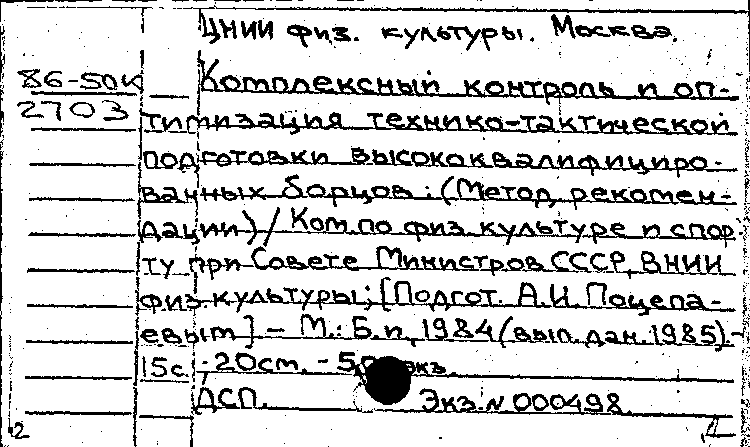 ЦНИИ физ. культуры. Москва.
86-50К Комплексный контроль и оп-
2703 тимизация технико-тактической
подготовки высококвалифициро-
ванных борцов: (Метод. рекомен-
дации) / Ком. по физ. культуре и спор-
ту при Совете Министров СССР, ВНИИ
физ. культуры; [Подгот. А.И. Поцепа-
евым] - М.: Б.и, 1984 (вып. дан. 1985).-
15с.; 20см. - экз.
ДСП. Экз. N 000498
2